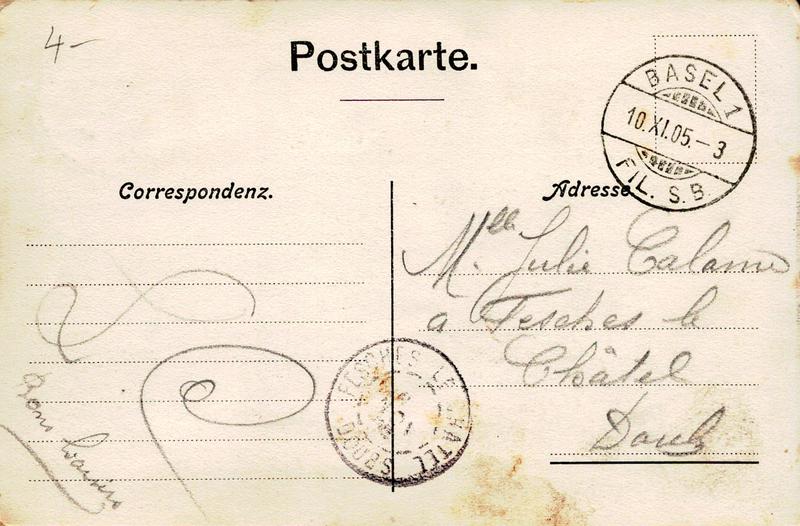 4-
Postkarte.
BASEL 1
10.XI.05.-3
FIL. S.B.
Correspondenz.
Adresse
Mlle. Julie Calame
a Fesches le
Châtel
Doubs
FESCHES LE CHATEL
DOUBS
Bon